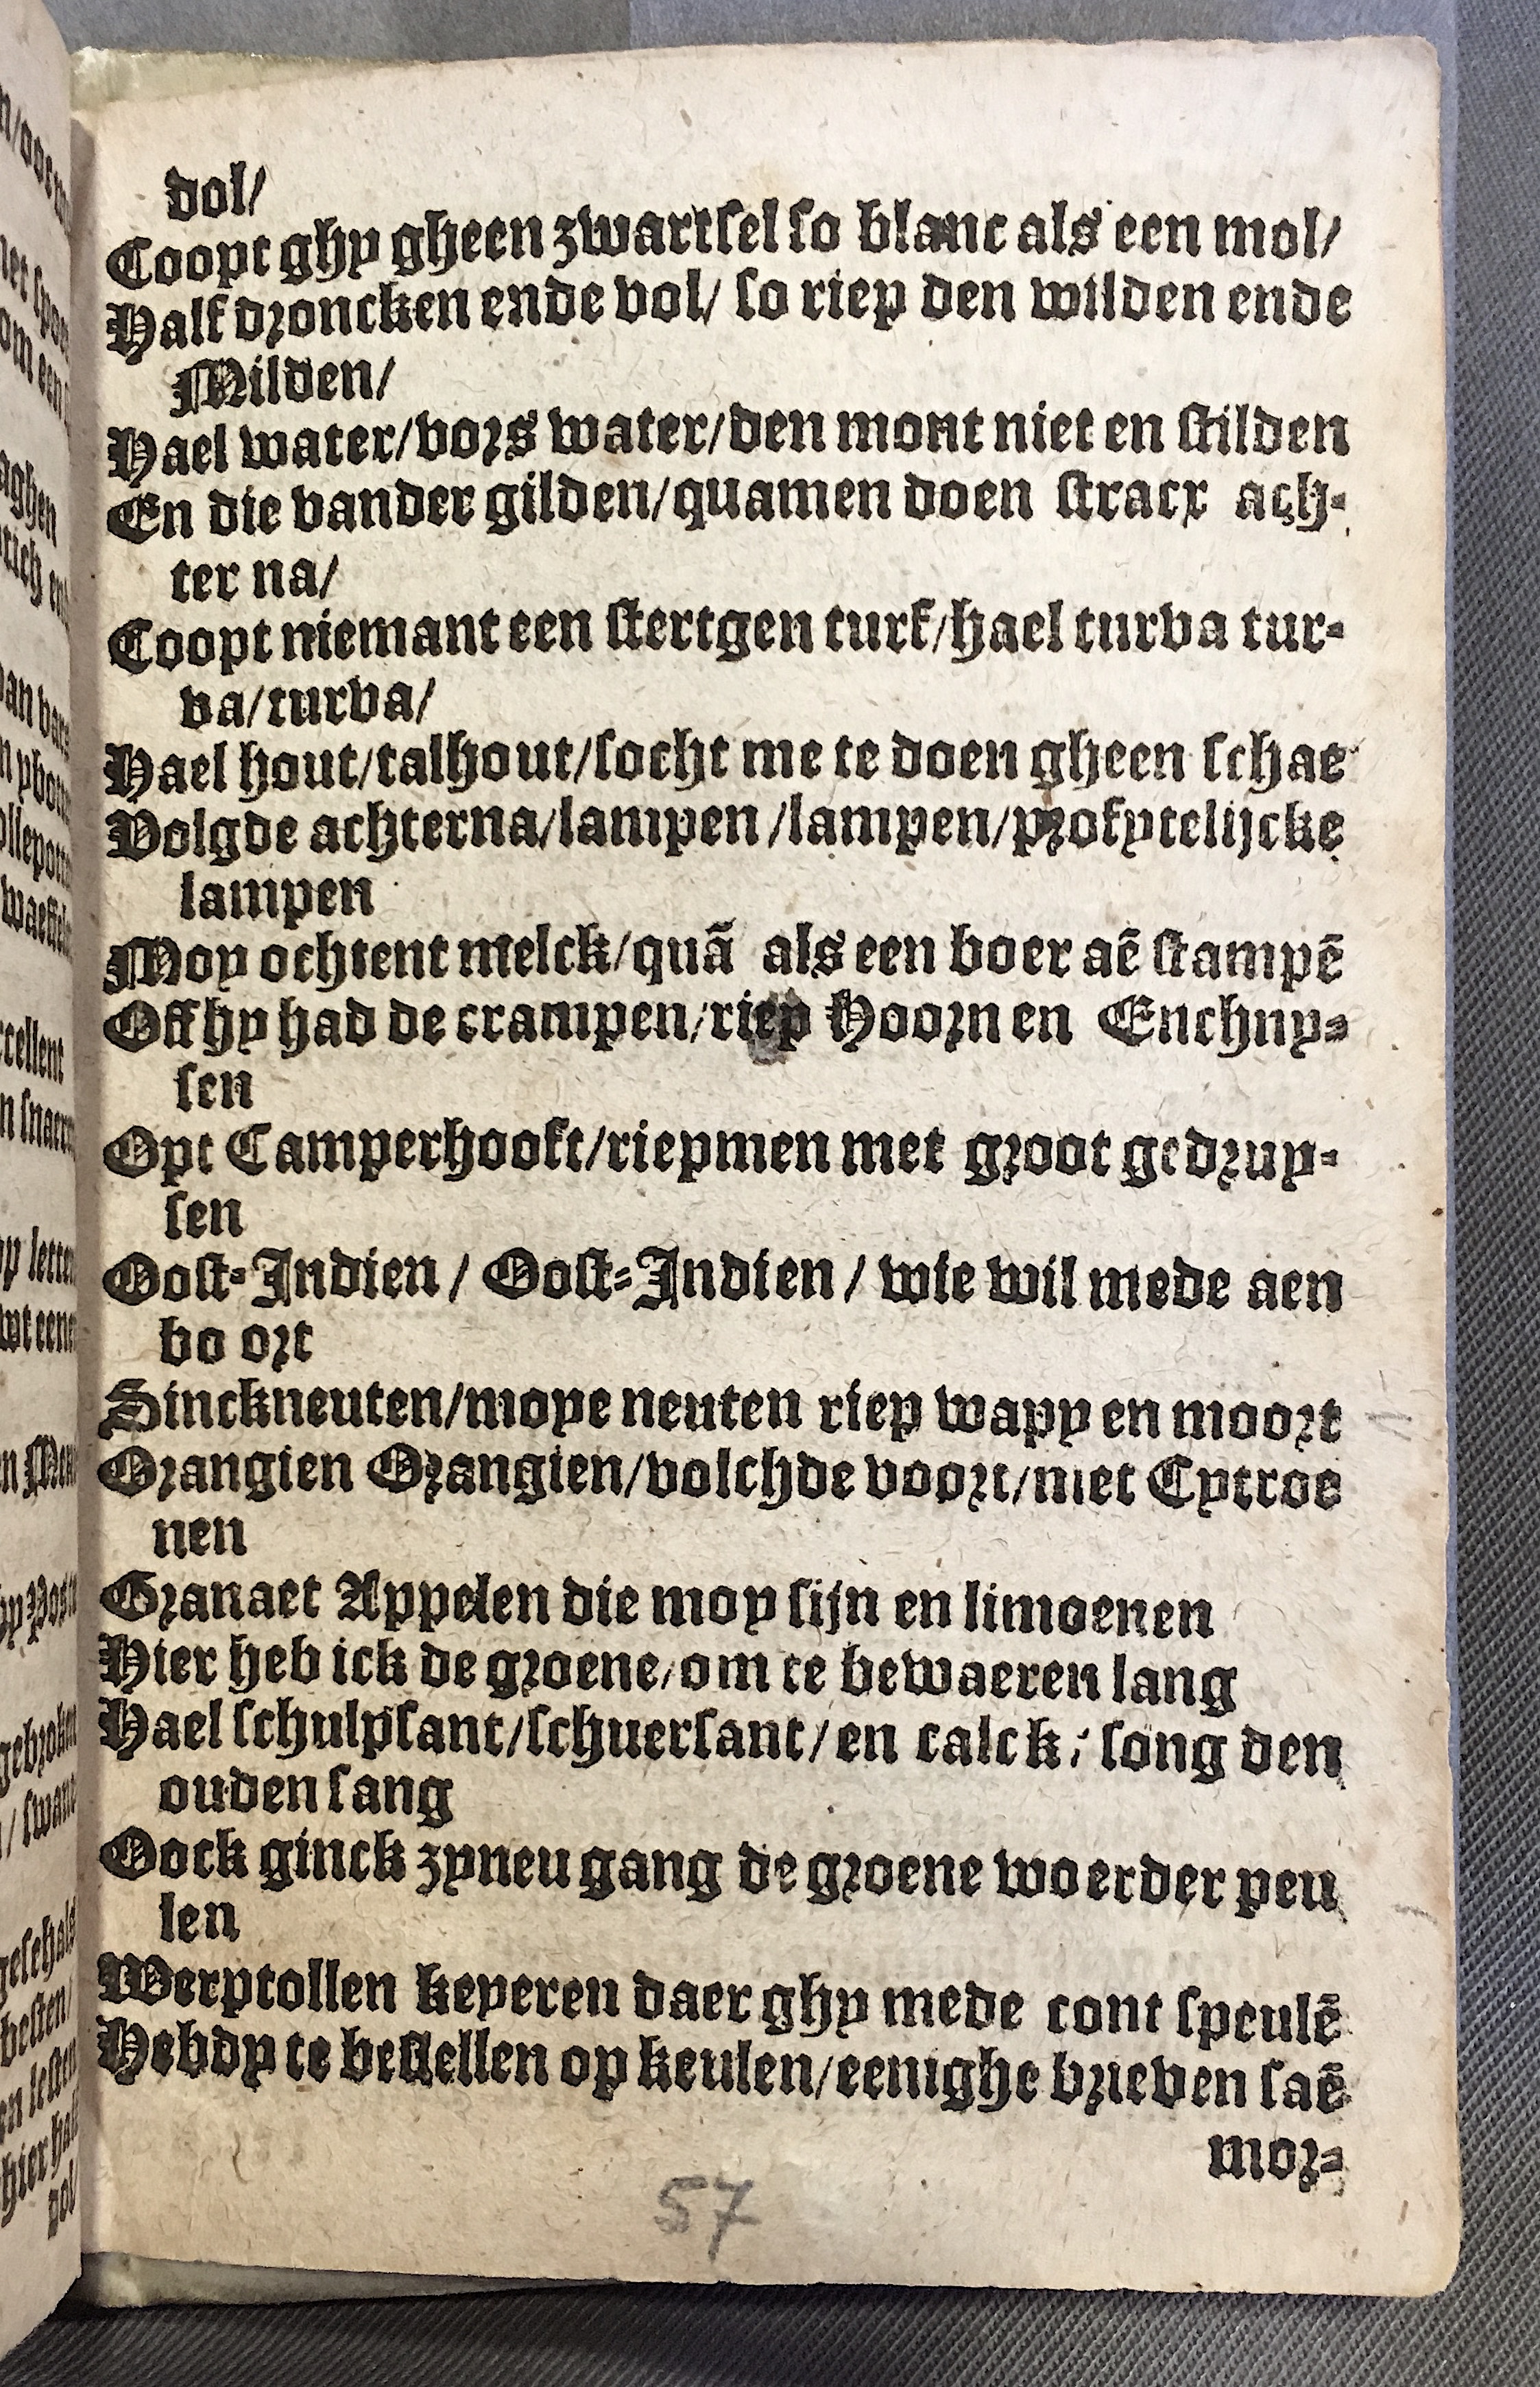 dol/
Coopt ghy gheen zwartsel so blanc als een mol/
Half droncken ende vol/ so riep den wilden ende
Milden/
Hael water/vors water/den mont niet en stilden
En die vander gilden/quamen doen stracx ach-
ter na/
Coopt niemant een stertgen turf/hael turva tur-
va/turva/
Hael hout/talhout/socht me te doen gheen schae
Volgde achterna/lampen/lampen/profytelijcke
lampen
Moy ochtent melck/quã als een boer aẽ stampẽ
Off hy had de crampen/riep Hoorn en Enchuy-
sen
Opt Camperhooft/riepmen met groot gedruy-
sen
Oost-Indien / Oost-Indien / wie wil mede aen
bo ort
Sinckneuten/moye neuten riep wapy en moort
Orangien Orangien/volchde voort/met Cytroe
nen
Granaet Appelen die moy sijn en limoenen
Hier heb ick de groene/om te bewaeren lang
Hael schulpsant/schuersant/en calck/ song den
ouden sang
Oock ginck zyneu gang de groene woerder peu
len
Werptollen keyeren daer ghy mede cont speulẽ
Hebdy te bestellen op keulen/eenighe brieven saẽ
mor-
57